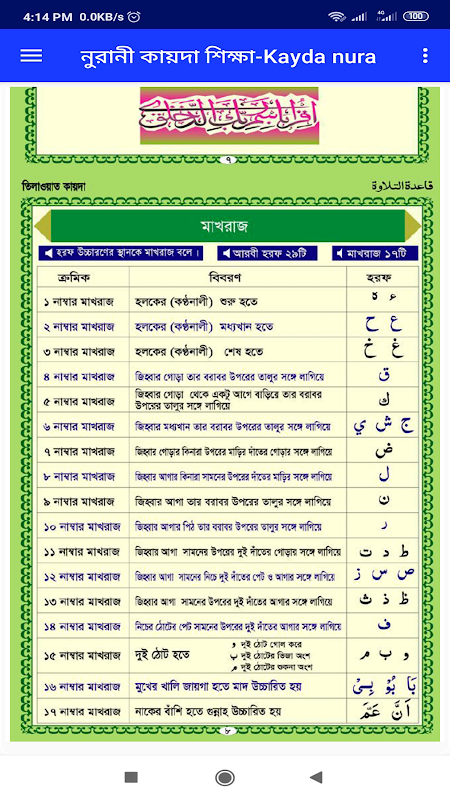 4:14 PM 0.0KB/s 4G 100
নুরানী কায়দা শিক্ষা-Kayda nura
٧
তিলাওয়াত কায়দা قاعدة التلاوة
মাখরাজ
হরফ উচ্চারণের স্থানকে মাখরাজ বলে। আরবী হরফ ২৯টি মাখরাজ ১৭টি
ক্রমিক বিবরণ হরফ
১ নাম্বার মাখরাজ হলকের (কণ্ঠনালী) শুরু হতে ء ه
২ নাম্বার মাখরাজ হলকের (কণ্ঠনালী) মধ্যখান হতে ع ح
৩ নাম্বার মাখরাজ হলকের (কণ্ঠনালী) শেষ হতে غ خ
৪ নাম্বার মাখরাজ জিহ্বার গোড়া তার বরাবর উপরের তালুর সঙ্গে লাগিয়ে ق
৫ নাম্বার মাখরাজ জিহ্বার গোড়া থেকে একটু আগে বাড়িয়ে তার বরাবর
উপরের তালুর সঙ্গে লাগিয়ে ك
৬ নাম্বার মাখরাজ জিহ্বার মধ্যখান তার বরাবর উপরের তালুর সঙ্গে লাগিয়ে ج ش ي
৭ নাম্বার মাখরাজ জিহ্বার গোড়ার কিনারা উপরের মাড়ির দাঁতের গোড়ার সঙ্গে লাগিয়ে ض
৮ নাম্বার মাখরাজ জিহ্বার আগার কিনারা সামনের উপরের দাঁতের মাড়ির সঙ্গে লাগিয়ে ل
৯ নাম্বার মাখরাজ জিহ্বার আগা তার বরাবর উপরের তালুর সঙ্গে লাগিয়ে ن
১০ নাম্বার মাখরাজ জিহ্বার আগার পিঠ তার বরাবর উপরের তালুর সঙ্গে লাগিয়ে ر
১১ নাম্বার মাখরাজ জিহ্বার আগা সামনের উপরের দুই দাঁতের গোড়ার সঙ্গে লাগিয়ে ط د ت
১২ নাম্বার মাখরাজ জিহ্বার আগা সামনের নিচে দুই দাঁতের পেট ও আগার সঙ্গে লাগিয়ে ص س ز
১৩ নাম্বার মাখরাজ জিহ্বার আগা সামনের উপরের দুই দাঁতের আগার সঙ্গে লাগিয়ে ظ ذ ث
১৪ নাম্বার মাখরাজ নিচের ঠোঁটের পেট সামনের উপরের দুই দাঁতের আগার সঙ্গে লাগিয়ে ف
১৫ নাম্বার মাখরাজ দুই ঠোট হতে و দুই ঠোট গোল করে
ب দুই ঠোটের ভিজা অংশ
م দুই ঠোটের শুকনা অংশ
و ب م
১৬ নাম্বার মাখরাজ মুখের খালি জায়গা হতে মাদ উচ্চারিত হয় بَا بُوْ بِىْ
১৭ নাম্বার মাখরাজ নাকের বাঁশি হতে গুন্নাহ উচ্চারিত হয় اَنَّ عَمَّ
٨